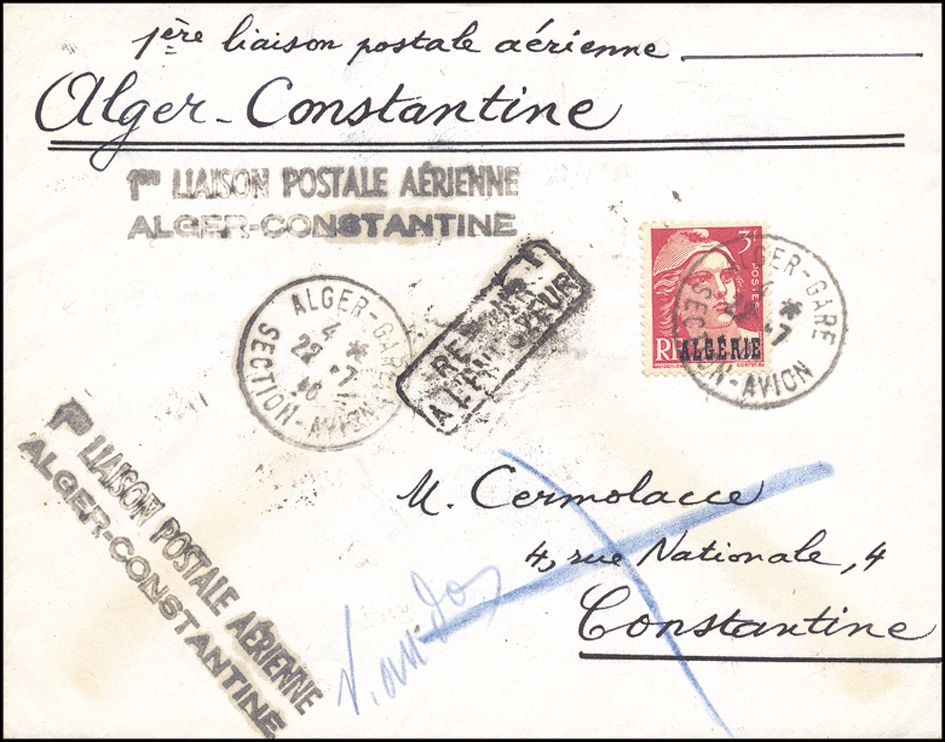 1ère liaison postale aérienne
Alger-Constantine
1ère LIAISON POSTALE AÉRIENNE
ALGER-CONSTANTINE
3F
POSTES
RF
ALGÉRIE
ALGER-GARE
4 *
22 -7
SECTION-AVION
RETOUR
A L'ENVOYEUR
ALGER-GARE
4 *
22 -7
46
SECTION-AVION
1ère LIAISON POSTALE AÉRIENNE
ALGER-CONSTANTINE
M. Cermolacce
4, rue Nationale, 4
Constantine
V. au dos